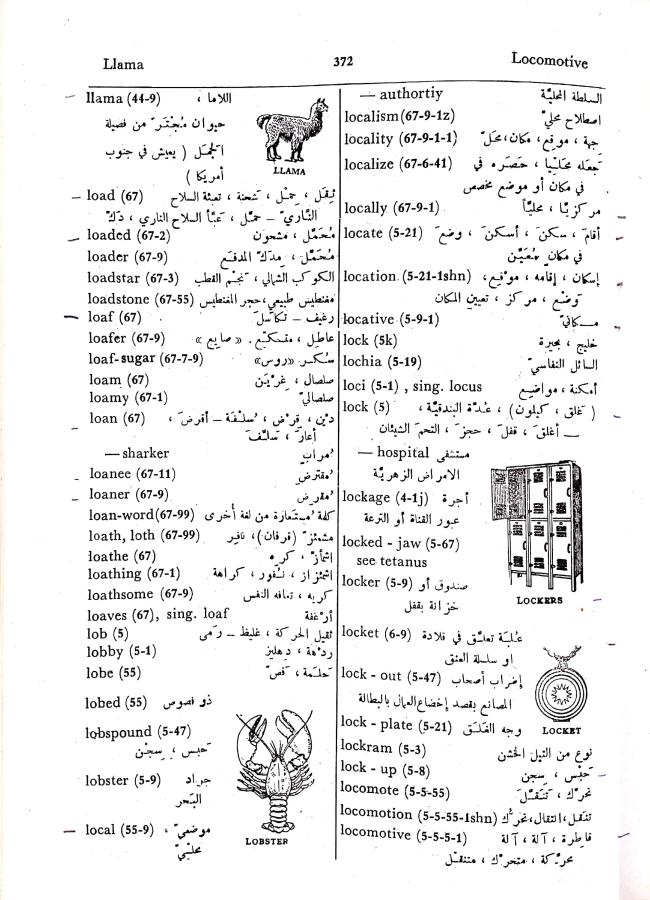 Llama 372 Locomotive
llama (44-9) اللاما ،
حيوان مُجْتَرّ من فصيلة
الجمل ( يعيش في جنوب
أمريكا )
LLAMA
load (67) ثِقَل ، حِمْل ، شحنة ، تعبئة السلاح
الناري – حمّل ، عبّأ السلاح الناري ، دكّ
loaded (67-2) مُحَمَّل ، مشحون
loader (67-9) مُحَمِّل ، مدكّ المدفع
loadstar (67-3) الكوكب الشمالي ، نجم القطب
loadstone (67-55) مغنطيس طبيعي، حجر المغنطيس
loaf (67) رغيف – تكاسل
loafer (67-9) عاطل ، متسكّع . « صايع »
loaf-sugar (67-7-9) سُكّر «روس»
loam (67) صلصال ، غَرْيَن
loamy (67-1) صلصاليّ
loan (67) دين ، قرض ، سُلْفة – أقرض ،
أعار ، سلّف
— sharker مُرابٍ
loanee (67-11) مُقترِض
loaner (67-9) مُقرِض
loan-word(67-99) كلمة مستعارة من لغة أخرى
loath, loth (67-99) مشمئزّ (قرفان)، نافر
loathe (67) اشمأزّ ، كره
loathing (67-1) اشمئزاز ، نفور ، كراهة
loathsome (67-9) كريه ، تعافه النفس
loaves (67), sing. loaf أرغفة
lob (5) ثقيل الحركة ، غليظ – رمى
lobby (5-1) ردهة ، دهليز
lobe (55) حلمة ، فصّ
lobed (55) ذو فصوص
lobspound (5-47)
حبس ، سجن
lobster (5-9) جراد
البحر
LOBSTER
local (55-9) موضعيّ ،
محلّيّ
— authortiy السلطة المحليّة
localism (67-9-1z) اصطلاح محليّ
locality (67-9-1-1) جهة ، موقع ، مكان، محلّ
localize (67-6-41) جعله محلّيا ، حصره في
في مكان أو موضع مخصص
locally (67-9-1) مركزيّا ، محليّاً
locate (5-21) أقام ، سكن ، أسكن ، وضع
في مكان مُعيّن
location (5-21-1shn) إسكان ، إقامه ، موقع ،
توضّع ، مركز ، تعيين المكان
locative (5-9-1) مكانيّ
lock (5k) خليج ، بحيرة
lochia (5-19) السائل النفاسيّ
loci (5-1) , sing. locus أمكنة ، مواضيع
lock (5) ( غلق ، كيلون) ، عُدّة البندقيّة ،
— أغلق ، قفل ، حجز ، التحم الشيئان
— hospital مستشفى
الامراض الزهريّة
lockage (4-1j) أجرة
عبور القناة أو الترعة
locked - jaw (5-67)
see tetanus
locker (5-9) صندوق أو
خزانة بقفل
LOCKERS
locket (6-9) علبة تعلّق في قلادة
او سلسلة العنق
lock - out (5-47) إضراب أصحاب
المصانع بقصد إخضاع العمال بالبطالة
lock - plate (5-21) وجه الغلق
LOCKET
lockram (5-3) نوع من التيل الخشن
lock - up (5-8) حبس ، سجن
locomote (5-5-55) تحرّك ، تنقّل
locomotion (5-5-55-1shn) تنقل، انتقال، تحرّك
locomotive (5-5-5-1) قاطرة ، آلة ، آلة
محرّكة ، متحرّك ، متنقل